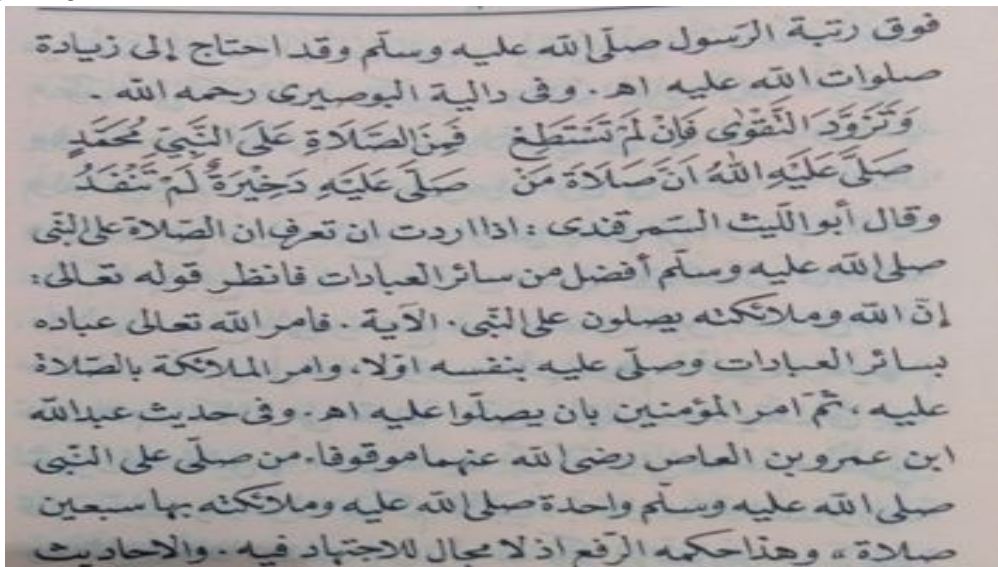 فوق رتبة الرّسول صلّى الله عليه وسلّم وقد احتاج إلى زيادة
صلوات الله عليه اهـ. وفى دالية البوصيرى رحمه الله .
وَتَزَوَّدِ التَّقْوٰى فَإِنْ لَمْ تَسْتَطِعْ فَمِنَ الصَّلَاةِ عَلَى النَّبِيِّ مُحَمَّدٍ
صَلَّى عَلَيْهِ اللّٰهُ اَنَّ صَلَاةَ مَنْ صَلَّى عَلَيْهِ دَخِيْرَةٌ لَمْ تَنْفَدُ
وقال أبو اللّيث السّمرقندى : اذا اردت ان تعرف ان الصّلاة على النّبى
صلى الله عليه وسلّم أفضل من سائر العبادات فانظر قوله تعالى :
إنّ الله وملائكته يصلون على النّبى . الآية . فامر الله تعالى عباده
بسائر العبادات وصلّى عليه بنفسه اوّلا، وامر الملائكة بالصّلاة
عليه ، ثمّ امر المؤمنين بان يصلّوا عليه اهـ. وفى حديث عبدالله
ابن عمرو بن العاص رضى الله عنهما موقوفا. من صلّى على النّبى
صلى الله عليه وسلّم واحدة صلى الله عليه وملائكته بها سبعين
صلاة ، وهذا حكمه الرّفع اذ لا مجال للاجتهاد فيه . والاحاديث